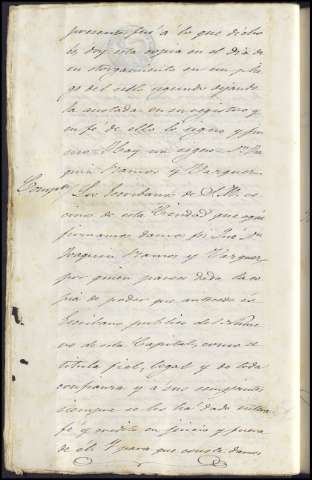 presente fui á lo que dicho
es, doy esta copia en el dia de
su otorgamiento en un plie
go del sello segundo dejando
la anotada en su registro, y
en fé de ello lo signo y fir
mo = Hay un signo = Dn Joa
quin Ramos y Vazquez
Comp.n Los Escribanos de S. M. ve
cinos de esta Ciudad que aqui
firmamos damos fé: Que Dn
Joaquin Ramos y Vazquez
por quien parece dada la co
pia de poder que antecede es
Escribano publico del Nume
ro de esta Capital, como se
titula fiel, legal y de toda
confianza y á sus semejantes
siempre se les ha dado entera
fé y credito en juicio y fuera
de el. Y para que conste damos